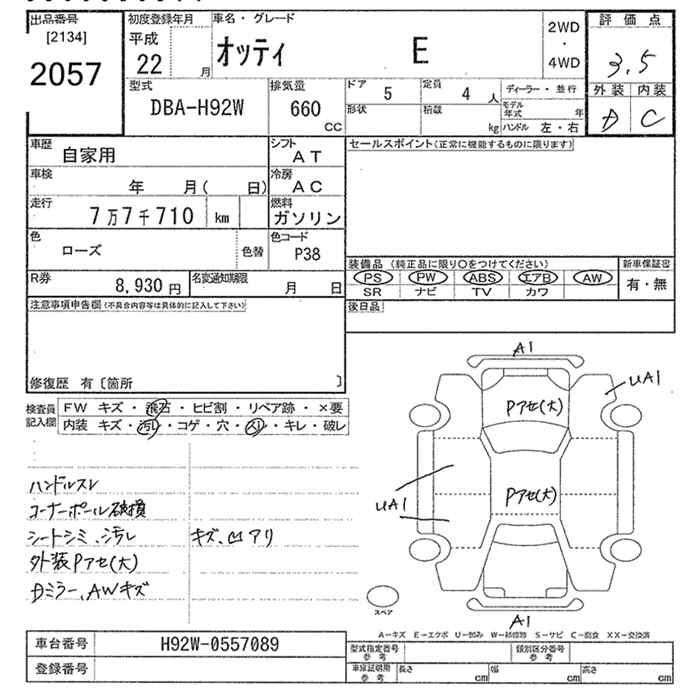 出品番号
[2134]
2057
初度登録年月
平成
22 月
車名・グレード
オッティ E
2WD
・
4WD
評価点
3.5
外装 内装
D C
型式
DBA-H92W
排気量
660
CC
ドア 5
定員 4 人
ディーラー・並行
形状
積載 kg
モデル年式 年
ハンドル 左・右
車歴
自家用
シフト
AT
車検
年 月( 日)
冷房
AC
走行
7万7千710 km
燃料
ガソリン
色
ローズ
色替
色コード
P38
R券
8,930円
名変通知期限
月 日
セールスポイント(正常に機能するものに限ります)
装備品 (純正品に限り○をつけてください)
PS PW ABS エアB AW
SR ナビ TV カワ
新車保証書
有・無
後日品
注意事項申告欄(不具合内容等は具体的に記入して下さい)
修復歴 有〔箇所 〕
検査員
記入欄
FW キズ・飛石・ヒビ割・リペア跡・×要
内装 キズ・汚レ・コゲ・穴・スレ・キレ・破レ
ハンドルスレ
コーナーポール破損
シートシミ、汚レ キズ、凹アリ
外装Pアセ(大)
Dミラー、AWキズ
A1
UA1
Pアセ(大)
Pアセ(大)
UA1
A1
スペア
A-キズ E-エクボ U-凹み W-補修跡 S-サビ C-腐食 XX-交換済
車台番号 H92W-0557089
登録番号
型式指定番号
参考
類別区分番号
参考
車庫証明用
参考
長さ cm 幅 cm 高さ cm